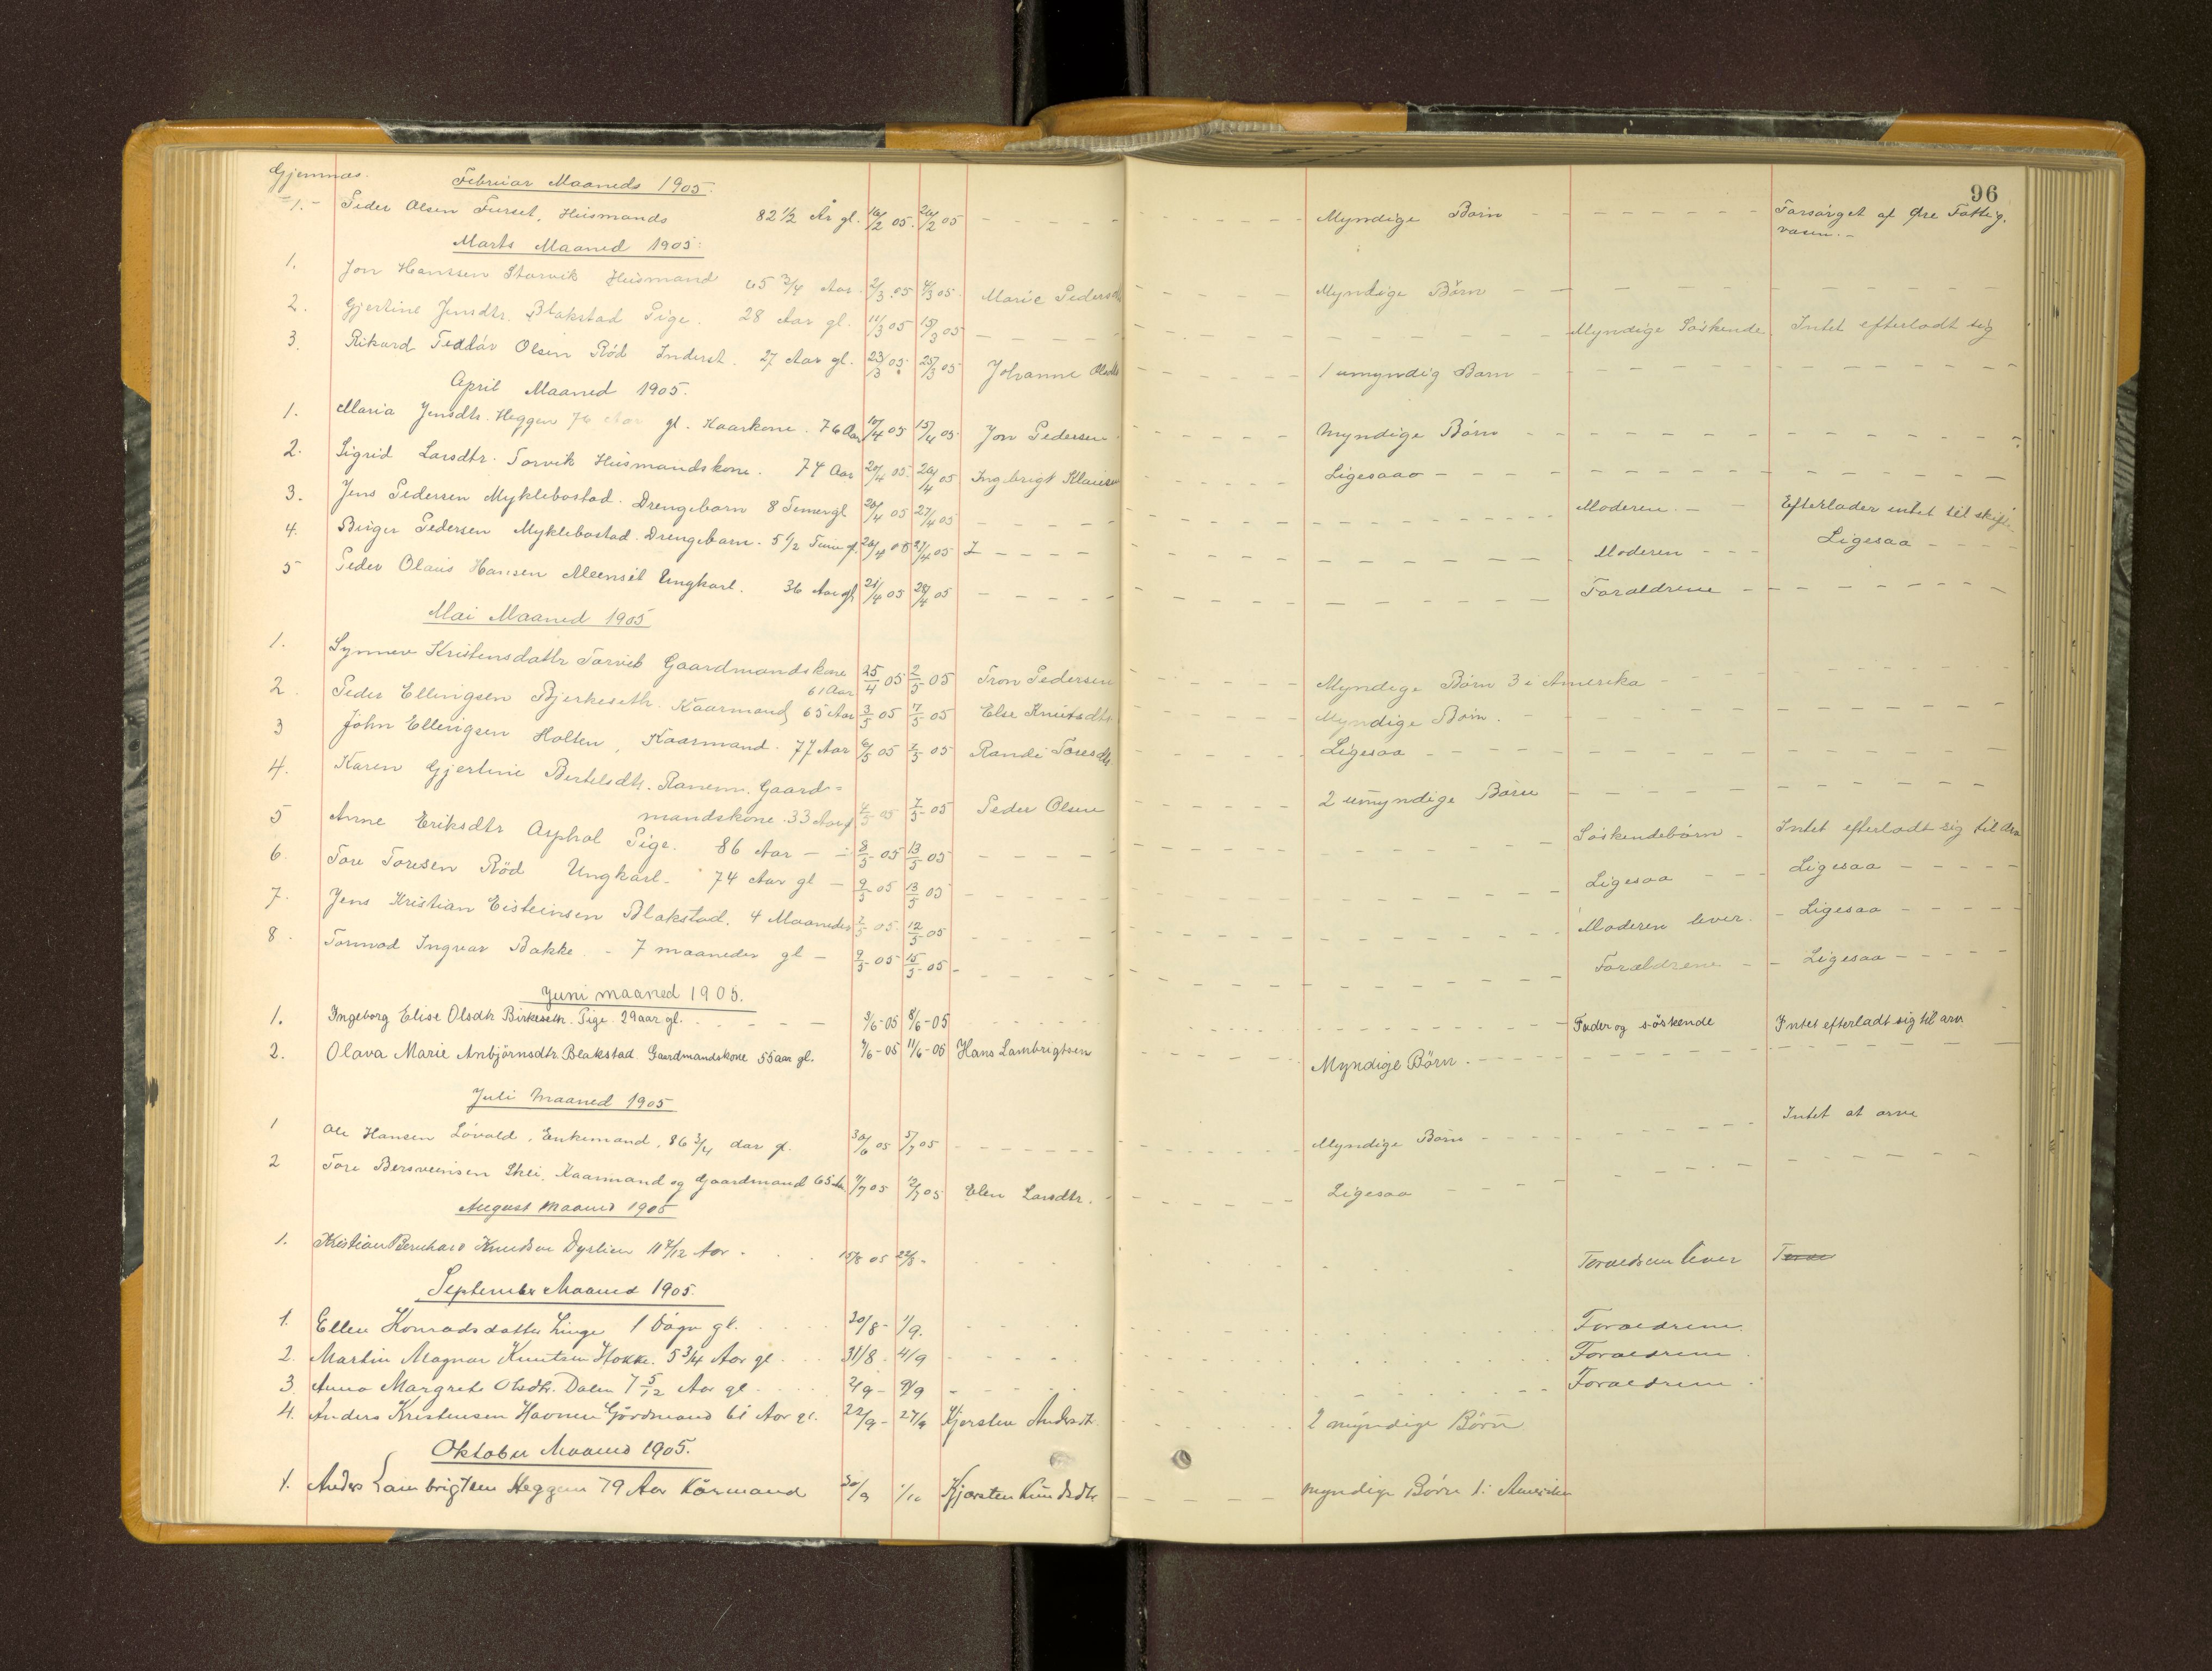 96
Gjemnæs. Februar Maaneds 1905.
1.- Peder Olsen Furset, Husmands 82 1/2 År gl. 16/2 05. 20/2 05 - - - - - Myndige Børn - - - - - Forsørget af Øre Fattig.
væsen.-
Marts Maaned 1905.
1. Jon Hanssen Storvik Husmand 65 3/4 Aar. 2/3 05 4/3 05. Marie Pedersdtr - - - - Myndige Børn - - - - -
2. Gjertine Jensdtr. Blakstad Pige. 28 Aar gl. 11/3 05 15/3 05 - - - - - Myndige Söskende Intet efterladt sig
3. Rikard Olsen Röd Inderst. 27 Aar gl. 23/3 05. 25/3 05 Johanne Olsdtr - - - - 1 umyndig Barn - - - - -
April Maaned 1905.
1. Maria Jensdtr. Heggem 76 Aar gl. Kaarkone. 76 Aar 10/4 05 15/4 05. Jon Pedersen - - - - Myndige Börn - - - - -
2. Sigrid Larsdtr. Torvik Husmandskone. 74 Aar 20/4 05. 26/4 05 Ingebrigt Klausen - - - - Ligesaa - - - - -
3. Jens Pedersen Myklebostad. Drengebarn 8 Timer gl 20/4 05 27/4 05 - - - - - Moderen. - - Efterlader intet til skifte
4. Birger Pedersen Myklebostad. Drengebarn. 5 1/2 Time gl. 20/4 05 27/4 05 - - - - - Moderen - - - Ligesaa - - -
5 Peder Olaus Hansen Meensit Ungkarl. 36 Aar gl 21/4 05 28/4 05 - - - - - Forældrene - - - - -
Mai Maaned 1905
1. Synnev Kristensdattr Torvik Gaardmandskone 25/4 05 2/5 05 Tron Pedersen - - - - Myndige Börn 3 i Amerika - - - -
61 Aar
2. Peder Ellingsen Bjerkeseth. Kaarmand 65 Aar 3/5 05 7/5 05 Else Knutsdtr. - - - - Myndige Börn. - - - -
3 John Ellingsen Holten, Kaarmand. 77 Aar 6/5 05 7/5 05 Randi Toresdtr - - - - Ligesaa - - - - -
4. Karen Gjertine Bertelsdtr. Ranem. Gaard=
mandskone. 33 Aar gl 4/5 05 7/5 05 Peder Olsen - - - - 2 umyndige Børn - - - - -
5 Anne Eriksdtr Asphol Pige. 86 Aar - 8/5 05 13/5 05 - - - - - Söskendebörn - Intet efterladt sig til Arv
6. Tore Toresen Röd Ungkarl. 74 Aar gl - 9/5 05 13/5 05 - - - - - Ligesaa - - - Ligesaa - - - -
7. Jens Kristian Eisteinsen Blakstad. 4 Maaneder 7/5 05. 12/5 05 - - - - - Moderen lever. - Ligesaa - - - -
8. Tormod Ingvar Bakke. - 7 maaneder gl - 9/5 05 15/5 05 - - - - - Forældrene - - Ligesaa - - - -
Juni maaned 1905.
1. Ingeborg Elise Olsdtr Birkeseth. Pige. 29 aar gl. - - - 3/6-05 8/6-05 - - - - - Fader og söskende Intet efterladt sig til arv.
2. Olava Marie Anbjörnsdtr. Blakstad. Gaardmandskone 55 aar gl. 7/6-05 11/6-05 Hans Lambrigtsen - - - - Myndige Börn. - - - - -
Juli Maaned 1905
1 Ole Hansen Lövold, Enkemand, 86 3/4 Aar gl. 30/6 05 5/7 05 - - - - - Myndige Börn - - - - - Intet at arve
2 Tore Bersveinsen Skei, Kaarmand og Gaardmand 65 Aar 7/7 05 12/7 05 Elen Larsdtr. - - - - Ligesaa - - - - -
August Maaned 1905
1. Kristian Bernhard Knudsen Dyrlien 11 7/12 Aar. 15/8 05 22/8 - . . . . . Foraeldrene lever
September Maaned 1905.
1. Ellen Konradsdatter Linge 1 Dögn gl. 30/8 - 1/9. - - - - - Foraeldrene.
2. Martin Magnar Knutsen Hokke. 5 3/4 Aar gl. 31/8. 4/9 - - - - - Foraeldrene.
3. Anna Margrete Olsdtr. Dalen 7 5/12 Aar gl. 2/9 - 9/9 - - - - - Foraeldrene.
4. Anders Kristensen Havnen Gårdmand 61 Aar gl. 22/9 - 27/9 Kjersten Andersdtr. - - - - 2 myndige Børn
Oktober Maaned 1905.
1. Anders Lambrigtsen Heggem 79 Aar Kårmand 30/9 1/10 Kjersten Knudsdtr - - - - myndige Børn 1 i Amerika